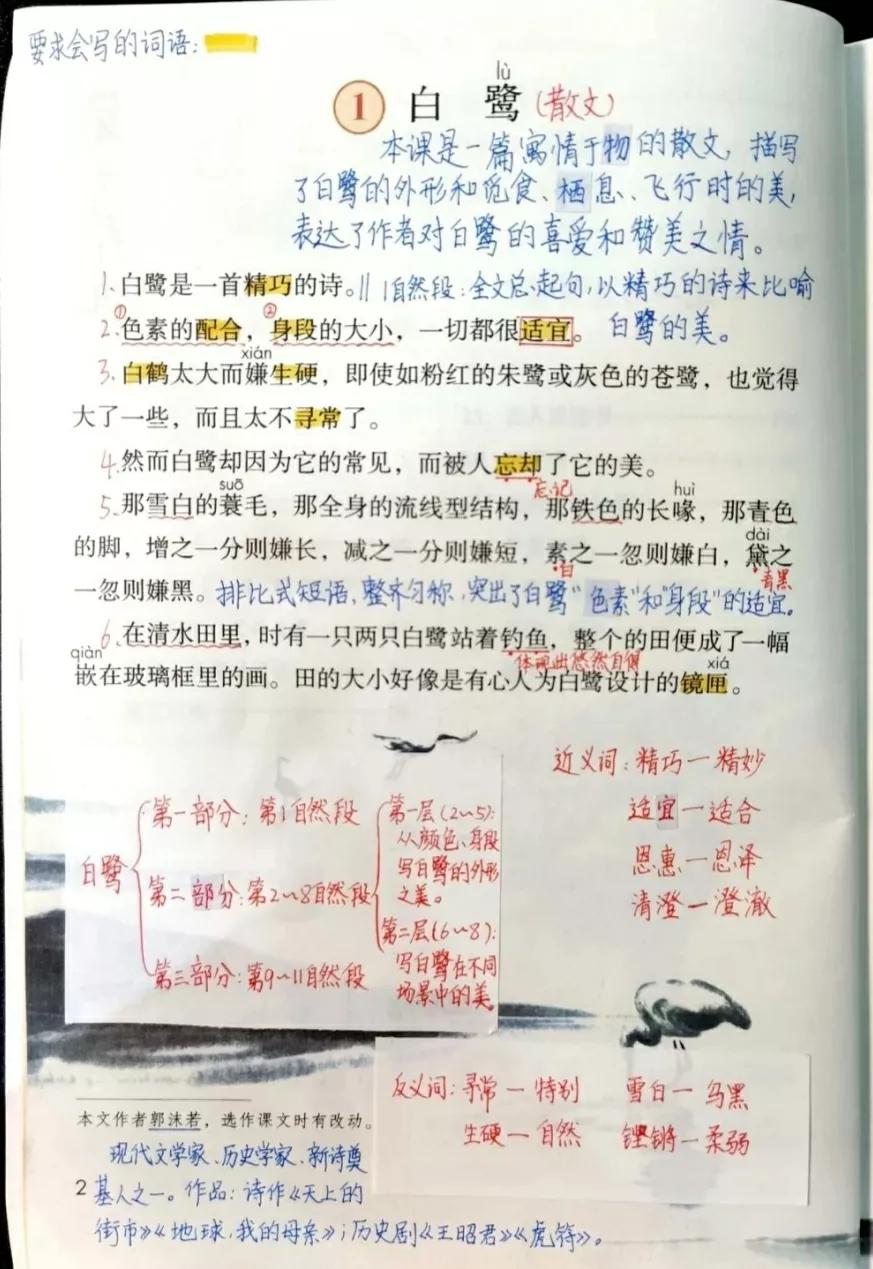 要求会写的词语：
lù
1 白 鹭（散文）
本课是一篇寓情于物的散文，描写
了白鹭的外形和觅食、栖息、飞行时的美，
表达了作者对白鹭的喜爱和赞美之情。
1.白鹭是一首精巧的诗。∥1自然段：全文总起句，以精巧的诗来比喻
白鹭的美。
① ②
2.色素的配合，身段的大小，一切都很适宜。
xián
3.白鹤太大而嫌生硬，即使如粉红的朱鹭或灰色的苍鹭，也觉得
大了一些，而且太不寻常了。
4.然而白鹭却因为它的常见，而被人忘却了它的美。
忘记
suō huì
5.那雪白的蓑毛，那全身的流线型结构，那铁色的长喙，那青色
dài
的脚，增之一分则嫌长，减之一分则嫌短，素之一忽则嫌白，黛之
白 青黑
一忽则嫌黑。排比式短语、整齐匀称，突出了白鹭"色素"和"身段"的适宜。
6.在清水田里，时有一只两只白鹭站着钓鱼，整个的田便成了一幅
体现出悠然自得
qiàn xiá
嵌在玻璃框里的画。田的大小好像是有心人为白鹭设计的镜匣。
白鹭
第一部分：第1自然段
第二部分：第2～8自然段
第三部分：第9～11自然段
第一层（2～5）：
从颜色、身段
写白鹭的外形
之美。
第二层（6～8）：
写白鹭在不同
场景中的美。
近义词：精巧—精妙
适宜—适合
恩惠—恩泽
清澄—澄澈
反义词：寻常—特别 雪白—乌黑
生硬—自然 铿锵—柔弱
本文作者郭沫若，选作课文时有改动。
现代文学家、历史学家、新诗奠
基人之一。作品：诗作《天上的
街市》《地球，我的母亲》；历史剧《王昭君》《虎符》。
2